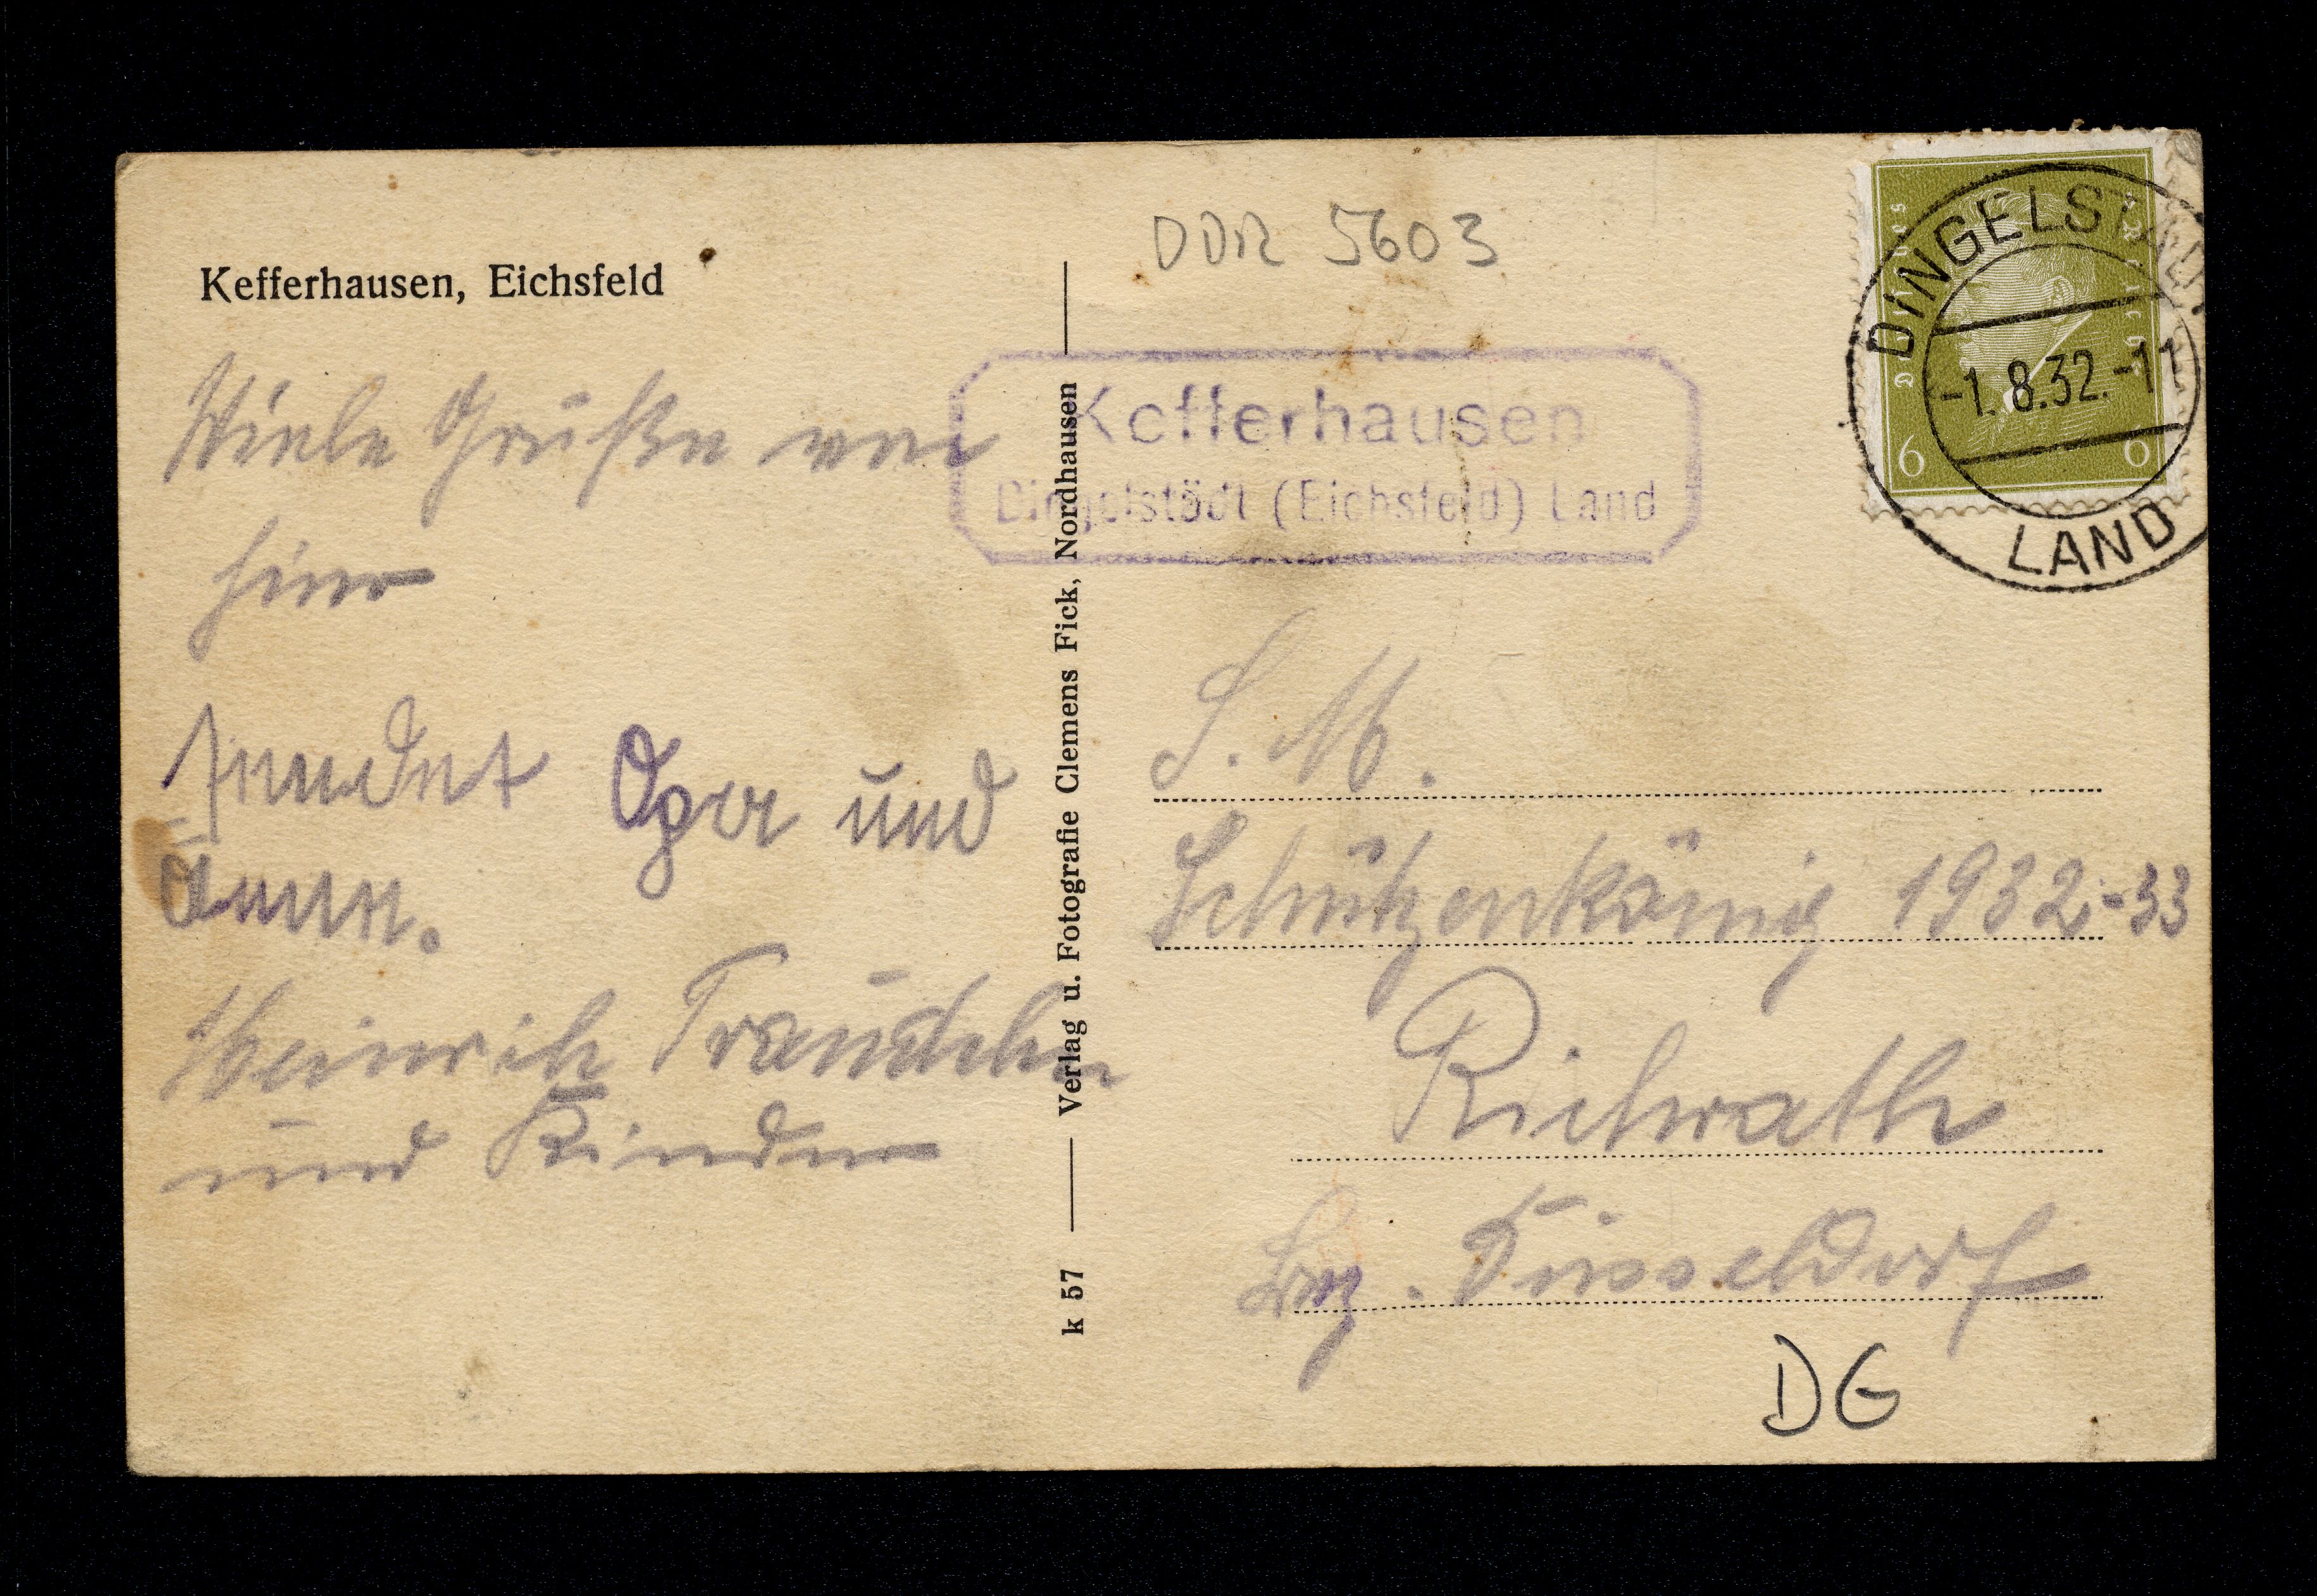 Kefferhausen, Eichsfeld
Viele Grüße von
hier
sendet und
Heinrich
und Kinder
k 57 Verlag u. Fotografie Clemens Fick, Nordhausen
DDR 5603
Kefferhausen
Dingelstädt (Eichsfeld) Land
DINGELSTÄDT
-1.8.32.-11
LAND
Deutsches Reich
6 6
S. M.
Schützenkönig 1932-33
Richrath
Bez. Düsseldorf
DG